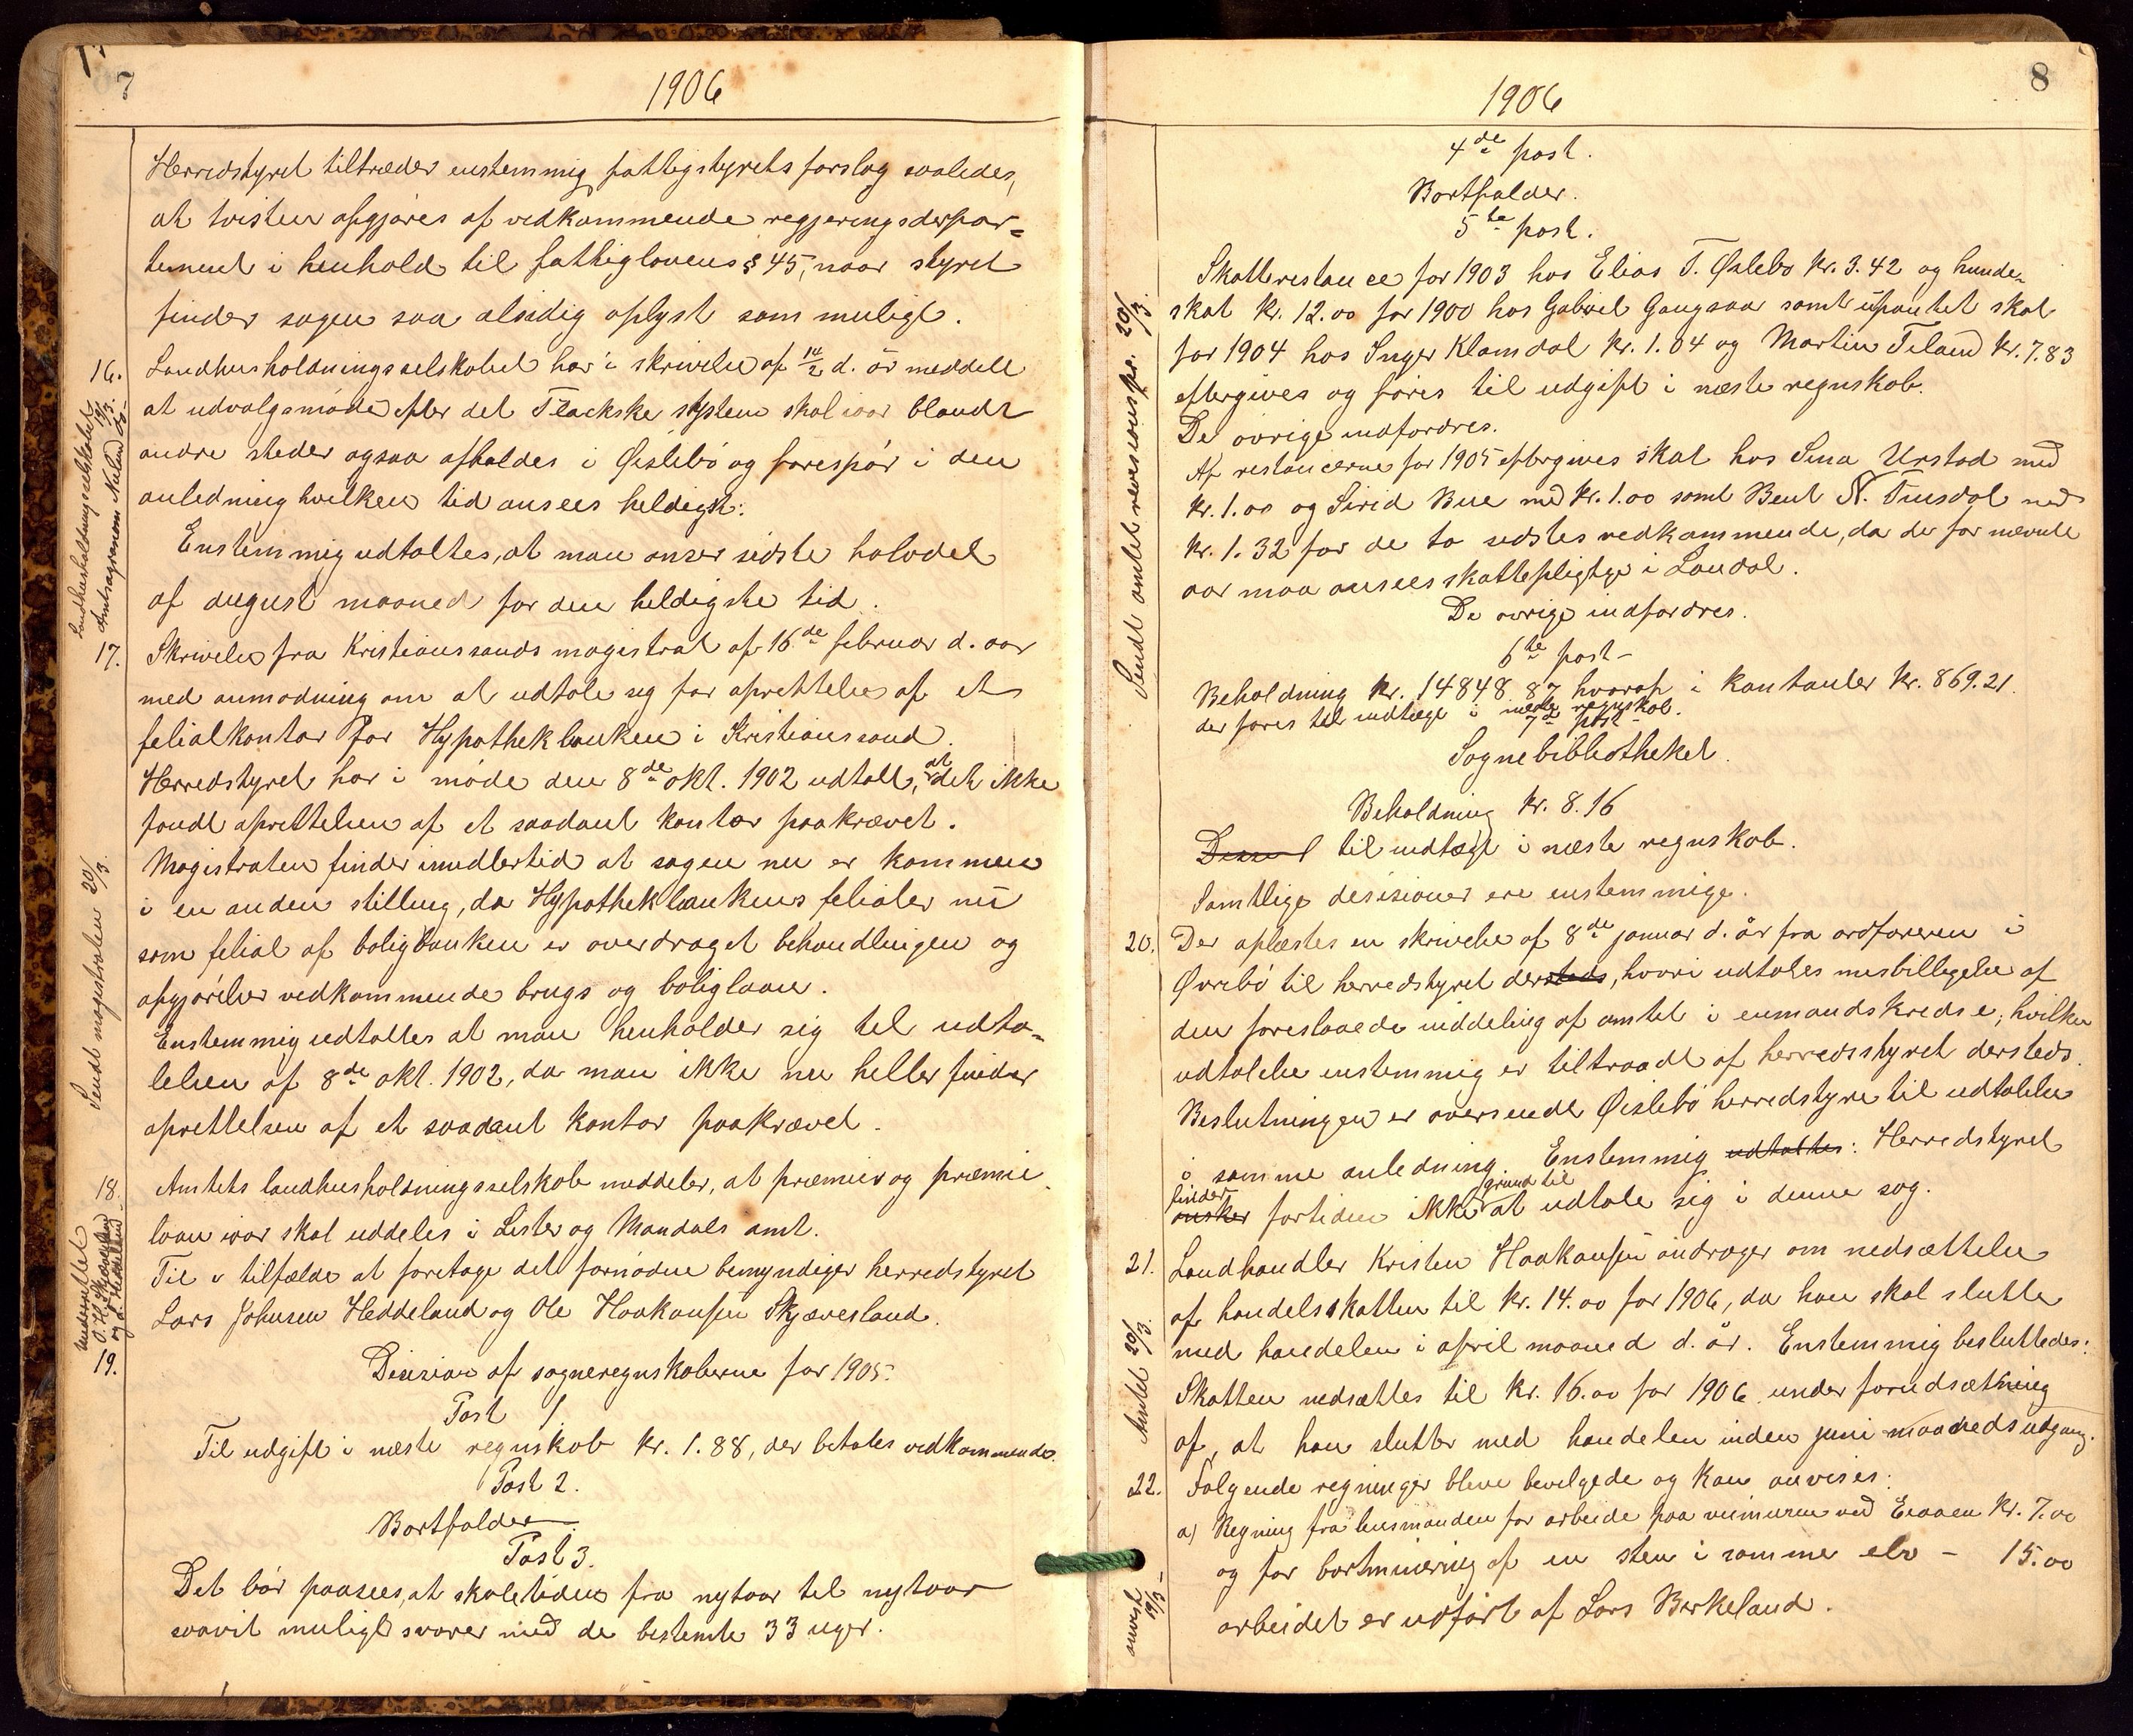 7
1906
Herredstyret tiltræder enstemmig fattigstyrets forslag saaledes,
at tvisten afgjøres af vedkommende regjeringsdepar=
tement i henhold til fattiglovens § 45, naar styret
finder sagen saa alsidig oplyst som muligt.
16. Landhusholdningsselskabet har i skrivelse af 14/2 d. år meddelt
at udvalgsmøde efter det Flackske system skal iaar blandt
andre steder ogsaa afholdes i Øislebø og forespør i den
anledning hvilken tid ansees heldigst.
Enstemmig udtaltes, at man anser sidste halvdel
af august maaned for den heldigste tid.
17. Skrivelse fra Kristianssands magistrat af 16de februar d. aar
med anmodning om at udtale sig for oprettelse af et
filialkontor for Hypothekbanken i Kristianssand.
Herredstyret har i møde den 8de okt. 1902 udtalt, at det ikke
fandt oprettelsen af et saadant kontor paakrævet.
Magistraten finder imidlertid at sagen nu er kommen
i en anden stilling, da Hypothekbankens filialer nu
som filial af boligbanken er overdraget behandlingen og
afgjørelse vedkommende brugs og boliglaan.
Enstemmig udtaltes at man henholder sig til udta=
lelsen af 8de okt. 1902, da man ikke nu heller finder
oprettelsen af et saadant kontor paakrævet.
18. Amtets landhusholdningsselskab meddeler, at præmier og præmie
laan iaar skal uddeles i Lister og Mandals amt.
Til i tilfælde at foretage det fornødne bemyndiger herredstyret
Lars Johnsen Heddeland og Ole Haakonsen Skjævesland.
19.
Decision af sogneregnskaberne for 1905.
Post 1
Til udgift i næste regnskab kr. 1.88, der betales vedkommende.
Post 2.
Bortfalder.
Post 3.
Det bør paasees, at skoletiden fra nytaar til nytaar
saavit muligt svarer med de bestemte 33 uger.
Landhusholdningsselskabet
19/3.
Sendt magistraten 20/3.
Underrettet
O. H. Skjævesland
og L. Heddeland
8
1906
4de post.
Bortfalder.
5te post.
Skatterestance for 1903 hos Elias T. Øslebø kr. 3.42 og hunde-
skat kr. 12.00 for 1900 hos Gabriel Gangsaa samt upantet skat
for 1904 hos Inger Klamdal kr. 1.04 og Martin Teland kr. 7.83
eftergives og føres til udgift i næste regnskab.
De øvrige indfordres.
Af restancerne for 1905 eftergives skat hos Sina Urstad med
kr. 1.00 og Sirid Bue med kr. 1.00 samt Bent N. Tuesdal med
kr. 1.32 for de to sidstes vedkommende, da de for nævnte
aar maa ansees skattepligtige i Laudal.
De øvrige indfordres.
6te post-
Beholdning kr. 14848.87 hvoraf i kontanter kr. 869.21.
der føres til indtægt i næste regnskab.
7de post-
Sognebibliotheket.
Beholdning kr. 8.16
til indtægt i næste regnskab.
Samtlige desisioner ere enstemmige.
20. Der oplæstes en skrivelse af 8de januar d. år fra ordføreren i
Øvrebø til herredstyret dersteds, hvori udtales misbilligelse af
den foreslaaede inddeling af amtet i enmandskredse; hvilken
udtalelse enstemmig er tiltraadt af herredsstyret dersteds.
Beslutningen er oversendt Øislebø herredstyre til udtalelse
i samme anledning. Enstemmig udtaltes: Herredstyret
finder
ønsker fortiden ikke grund til at udtale sig i denne sag.
21. Landhandler Kristen Haakonsen andrager om nedsættelse
af handelsskatten til kr. 14.00 for 1906, da han skal slutte
med handelen i april maaned d. år. Enstemmig besluttedes:
Skatten nedsættes til kr. 16.00 for 1906 under forudsætning
af, at han slutter med handelen inden juni maaneds udgang.
22. Følgende regninger bleve bevilgede og kan anvises:
a) Regning fra husmanden for arbeide paa veimuren ved Eraaen kr. 7.00
og for bortminering af en sten i samme elv - 15.00
arbeidet er udført af Lars Birkeland.
Sendt amtet revisionspr. 20/3.
Amtet 20/3.
anvist
19/3-